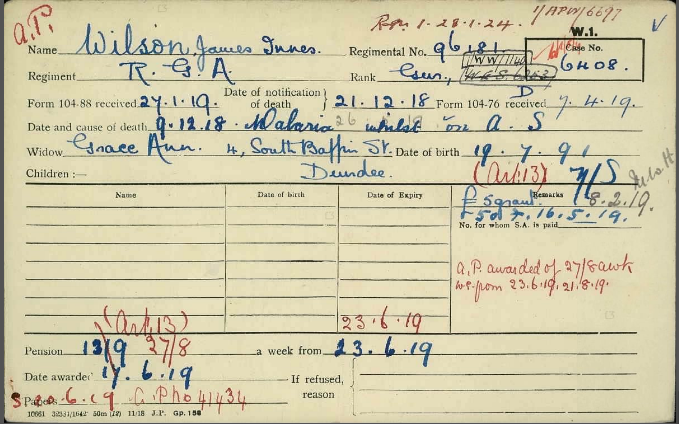 A.P.
R.n. 1-28.1.24. 1/APW/6697
W.1.
Name Wilson, James Innes. Regimental No. 96181. Case No.
Regiment R. G. A. Rank Gnr., WW1140 6408.
Form 104-88 received 27.1.19. Date of notification of death 21.12.18 Form 104-76 received 7.4.19.
D
Date and cause of death 9.12.18 Malaria 26 whilst on A. S
Widow Grace Ann. 4, South Baffin St. Date of birth 19.7.91
Children :— Dundee. (Art. 13)
Name Date of birth Date of Expiry Remarks
£5 grant. 8.2.19.
£5 16.5.19.
No. for whom S.A. is paid
A.P. awarded of 27/8 a wk
w.e. from 23.6.19. 21.8.19.
(Art. 13) 23.6.19
Pension 13/9 27/8 a week from 23.6.19
Date awarded 17.6.19 If refused,
reason
Papers 20.6.19 41434
10661 32531/1642 50m (12) 11/18 J.P. Gp. 158